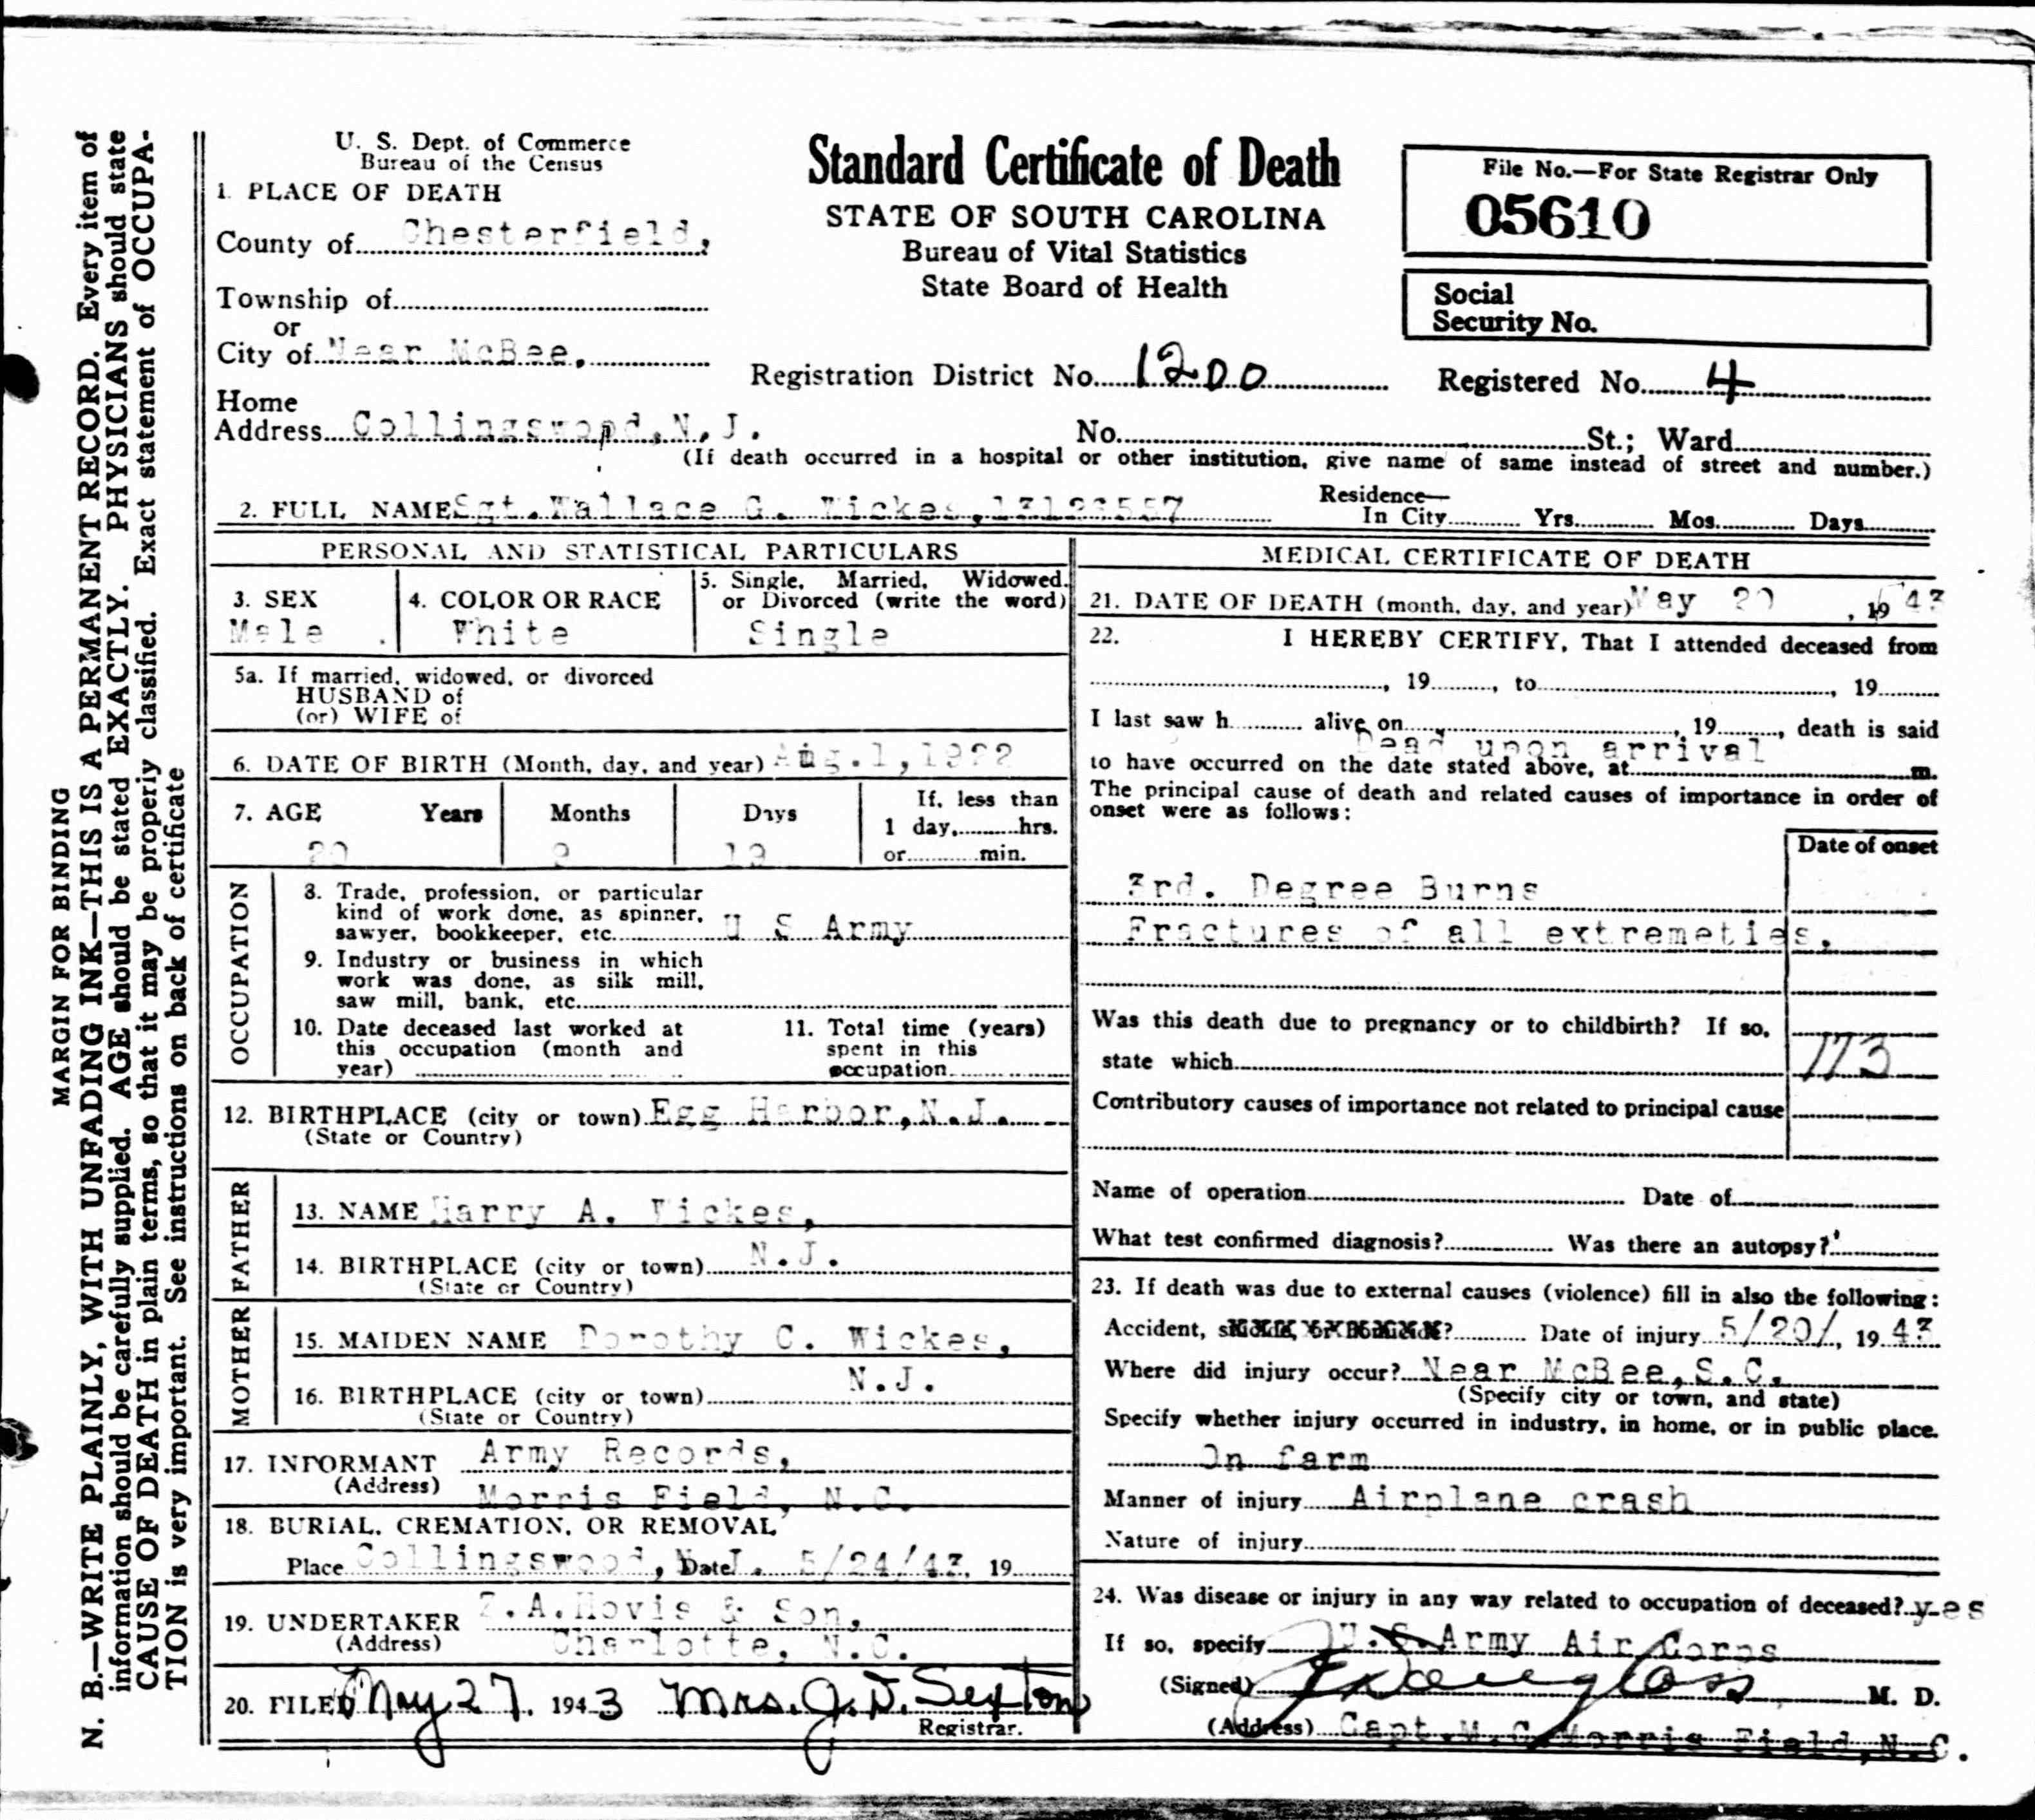 U. S. Dept. of Commerce
Bureau of the Census
Standard Certificate of Death
STATE OF SOUTH CAROLINA
Bureau of Vital Statistics
State Board of Health
File No.—For State Registrar Only
05610
Social
Security No.
1. PLACE OF DEATH
County of Chesterfield,
Township of
or
City of Near McBee,
Registration District No. 1200 Registered No. 4
Home
Address Collingswood, N. J. No. St.; Ward
(If death occurred in a hospital or other institution, give name of same instead of street and number.)
2. FULL NAME Sgt. Wallace G. Wickes,
Residence—
In City Yrs. Mos. Days
PERSONAL AND STATISTICAL PARTICULARS
3. SEX
Male
4. COLOR OR RACE
White
5. Single, Married, Widowed,
or Divorced (write the word)
Single
5a. If married, widowed, or divorced
HUSBAND of
(or) WIFE of
6. DATE OF BIRTH (Month, day, and year) Aug. 1, 1922
7. AGE Years Months Days
20 9 19
If, less than
1 day, hrs.
or min.
OCCUPATION
8. Trade, profession, or particular
kind of work done, as spinner,
sawyer, bookkeeper, etc. U S Army
9. Industry or business in which
work was done, as silk mill,
saw mill, bank, etc.
10. Date deceased last worked at
this occupation (month and
year)
11. Total time (years)
spent in this
occupation
12. BIRTHPLACE (city or town) Egg Harbor, N. J.
(State or Country)
FATHER
13. NAME Harry A. Wickes,
14. BIRTHPLACE (city or town) N. J.
(State or Country)
MOTHER
15. MAIDEN NAME Dorothy C. Wickes,
16. BIRTHPLACE (city or town) N.J.
(State or Country)
17. INFORMANT Army Records,
(Address) Morris Field, N.C.
18. BURIAL, CREMATION, OR REMOVAL
Place Collingswood, N. J. Date 5/24/43, 19
19. UNDERTAKER A. Hovis & Son,
(Address) Charlotte, N.C.
20. FILED May 27, 1943 Mrs. J. D. Sexton
Registrar.
MEDICAL CERTIFICATE OF DEATH
21. DATE OF DEATH (month, day, and year) May 20, 1943
22. I HEREBY CERTIFY, That I attended deceased from
, 19 , to , 19
I last saw h alive on , 19 , death is said
Dead upon arrival
to have occurred on the date stated above, at m.
The principal cause of death and related causes of importance in order of
onset were as follows:
Date of onset
3rd. Degree Burns
Fractures of all extremeties.
Was this death due to pregnancy or to childbirth? If so,
state which
173
Contributory causes of importance not related to principal cause
Name of operation Date of
What test confirmed diagnosis? Was there an autopsy?
23. If death was due to external causes (violence) fill in also the following:
Accident, suicide, or homicide? Date of injury 5/20/, 1943
Where did injury occur? Near McBee, S.C.
(Specify city or town, and state)
Specify whether injury occurred in industry, in home, or in public place.
On farm
Manner of injury Airplane crash
Nature of injury
24. Was disease or injury in any way related to occupation of deceased? yes
If so, specify U.S. Army Air Corps
(Signed) Douglass M. D.
(Address) Capt. M.C. Morris Field, N.C.
MARGIN FOR BINDING
N. B.—WRITE PLAINLY, WITH UNFADING INK—THIS IS A PERMANENT RECORD. Every item of
information should be carefully supplied. AGE should be stated EXACTLY. PHYSICIANS should state
CAUSE OF DEATH in plain terms, so that it may be properly classified. Exact statement of OCCUPA-
TION is very important. See instructions on back of certificate